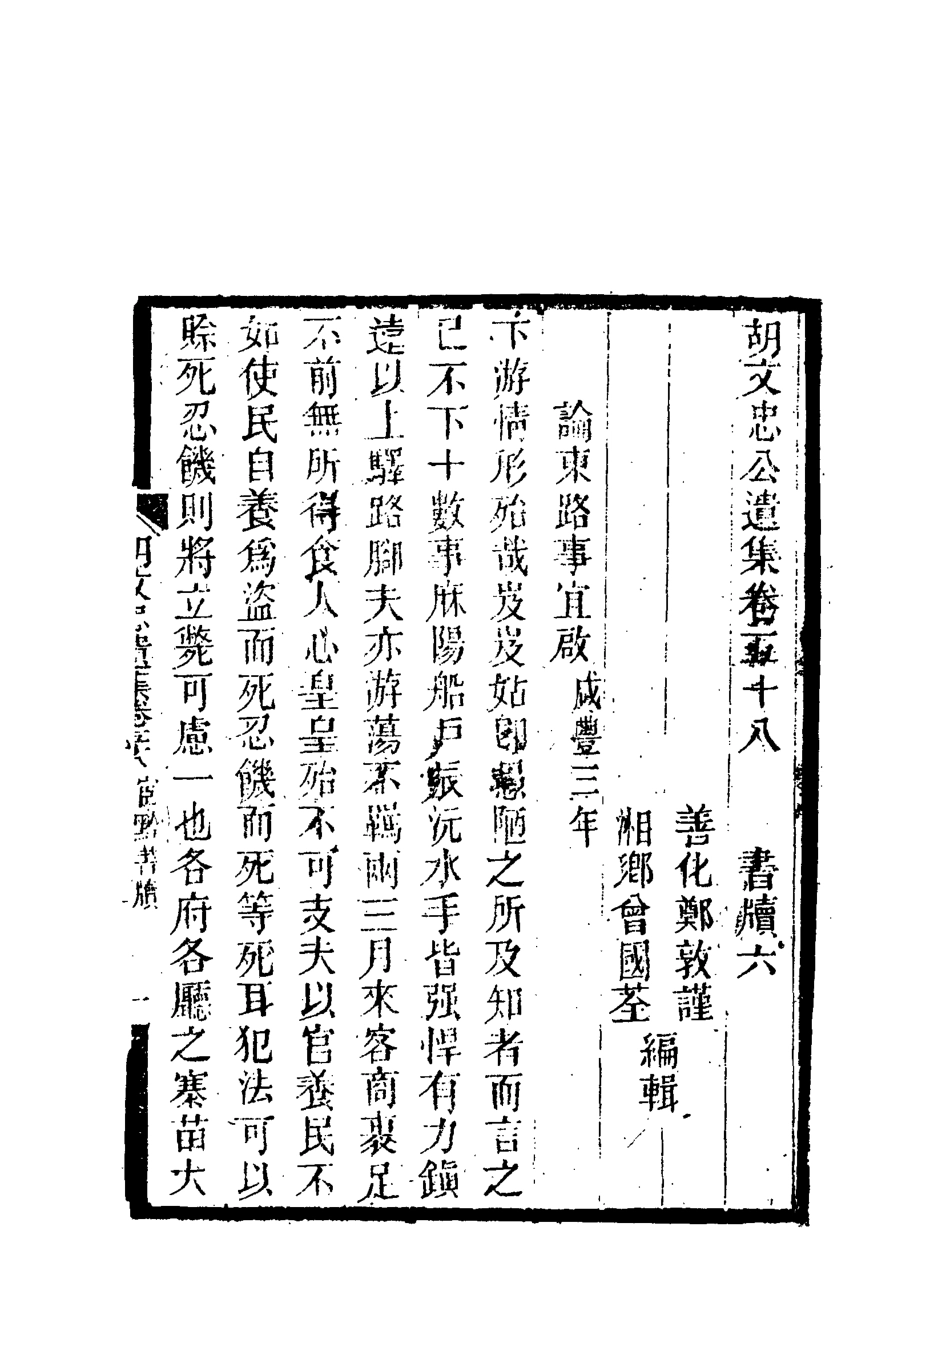 胡文忠公遺集卷五十八　書牘六
善化鄭敦謹
湘鄉曾國荃
編輯
論東路事宜啟咸豐三年
下游情形殆哉岌岌姑卽愚陋之所及知者而言之
已不下十數事麻陽船戶辰沅水手皆强悍有力鎭
遠以上驛路腳夫亦游蕩不羈兩三月來客商裹足
不前無所得食人心皇皇殆不可支夫以官養民不
如使民自養爲盜而死忍饑而死等死耳犯法可以
賒死忍饑則將立斃可慮一也各府各廳之寨苗大
胡文忠遺集卷五十八 宦黔書牘　一